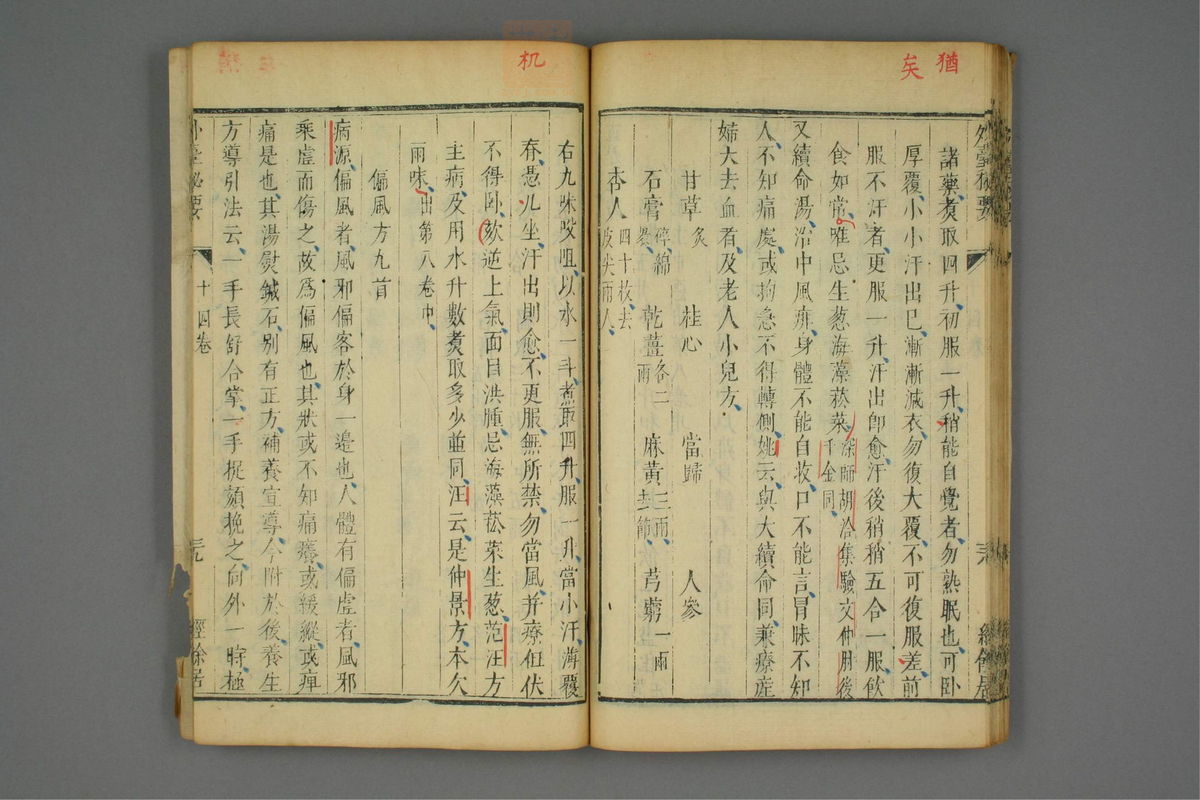 猶
矣
外臺秘要
諸藥煮取四升初服一升稍能自覺者勿熟眠也可卧
厚覆小小汗出已漸漸減衣勿復大覆不可復服差前
服不汗者更服一升汗出即愈汗後稍稍五合一服飲
食如常唯忌生葱海藻菘菜深師胡洽集驗文仲肘後
千金同
又續命湯治中風痱身體不能自收口不能言冒昧不知
人不知痛處或拘急不得轉側姚云與大續命同兼療産
婦大去血者及老人小兒方
甘草炙 桂心 當歸 人參
石膏碎綿裹 乾薑各二兩 麻黄三兩去節 芎藭一兩
杏人四十枚去皮尖兩人
机
右九味㕮咀以水一斗煮取四升服一升當小汗薄覆
脊憑几坐汗出則愈不更服無所禁勿當風并療但伏
不得卧欬逆上氣面目洪腫忌海藻菘菜生葱范汪方
主病及用水升數煮取多少並同汪云是仲景方本欠
兩味出第八卷中
偏風方九首
病源偏風者風邪偏客於身一邊也人體有偏虚者風邪
乘虚而傷之故爲偏風也其狀或不知痛癢或緩縱或痺
痛是也其湯熨鍼石别有正方補養宣導今附於後養生
方導引法云一手長舒合掌一手捉頦挽之向外一時極
外臺秘要 十四卷 經餘居